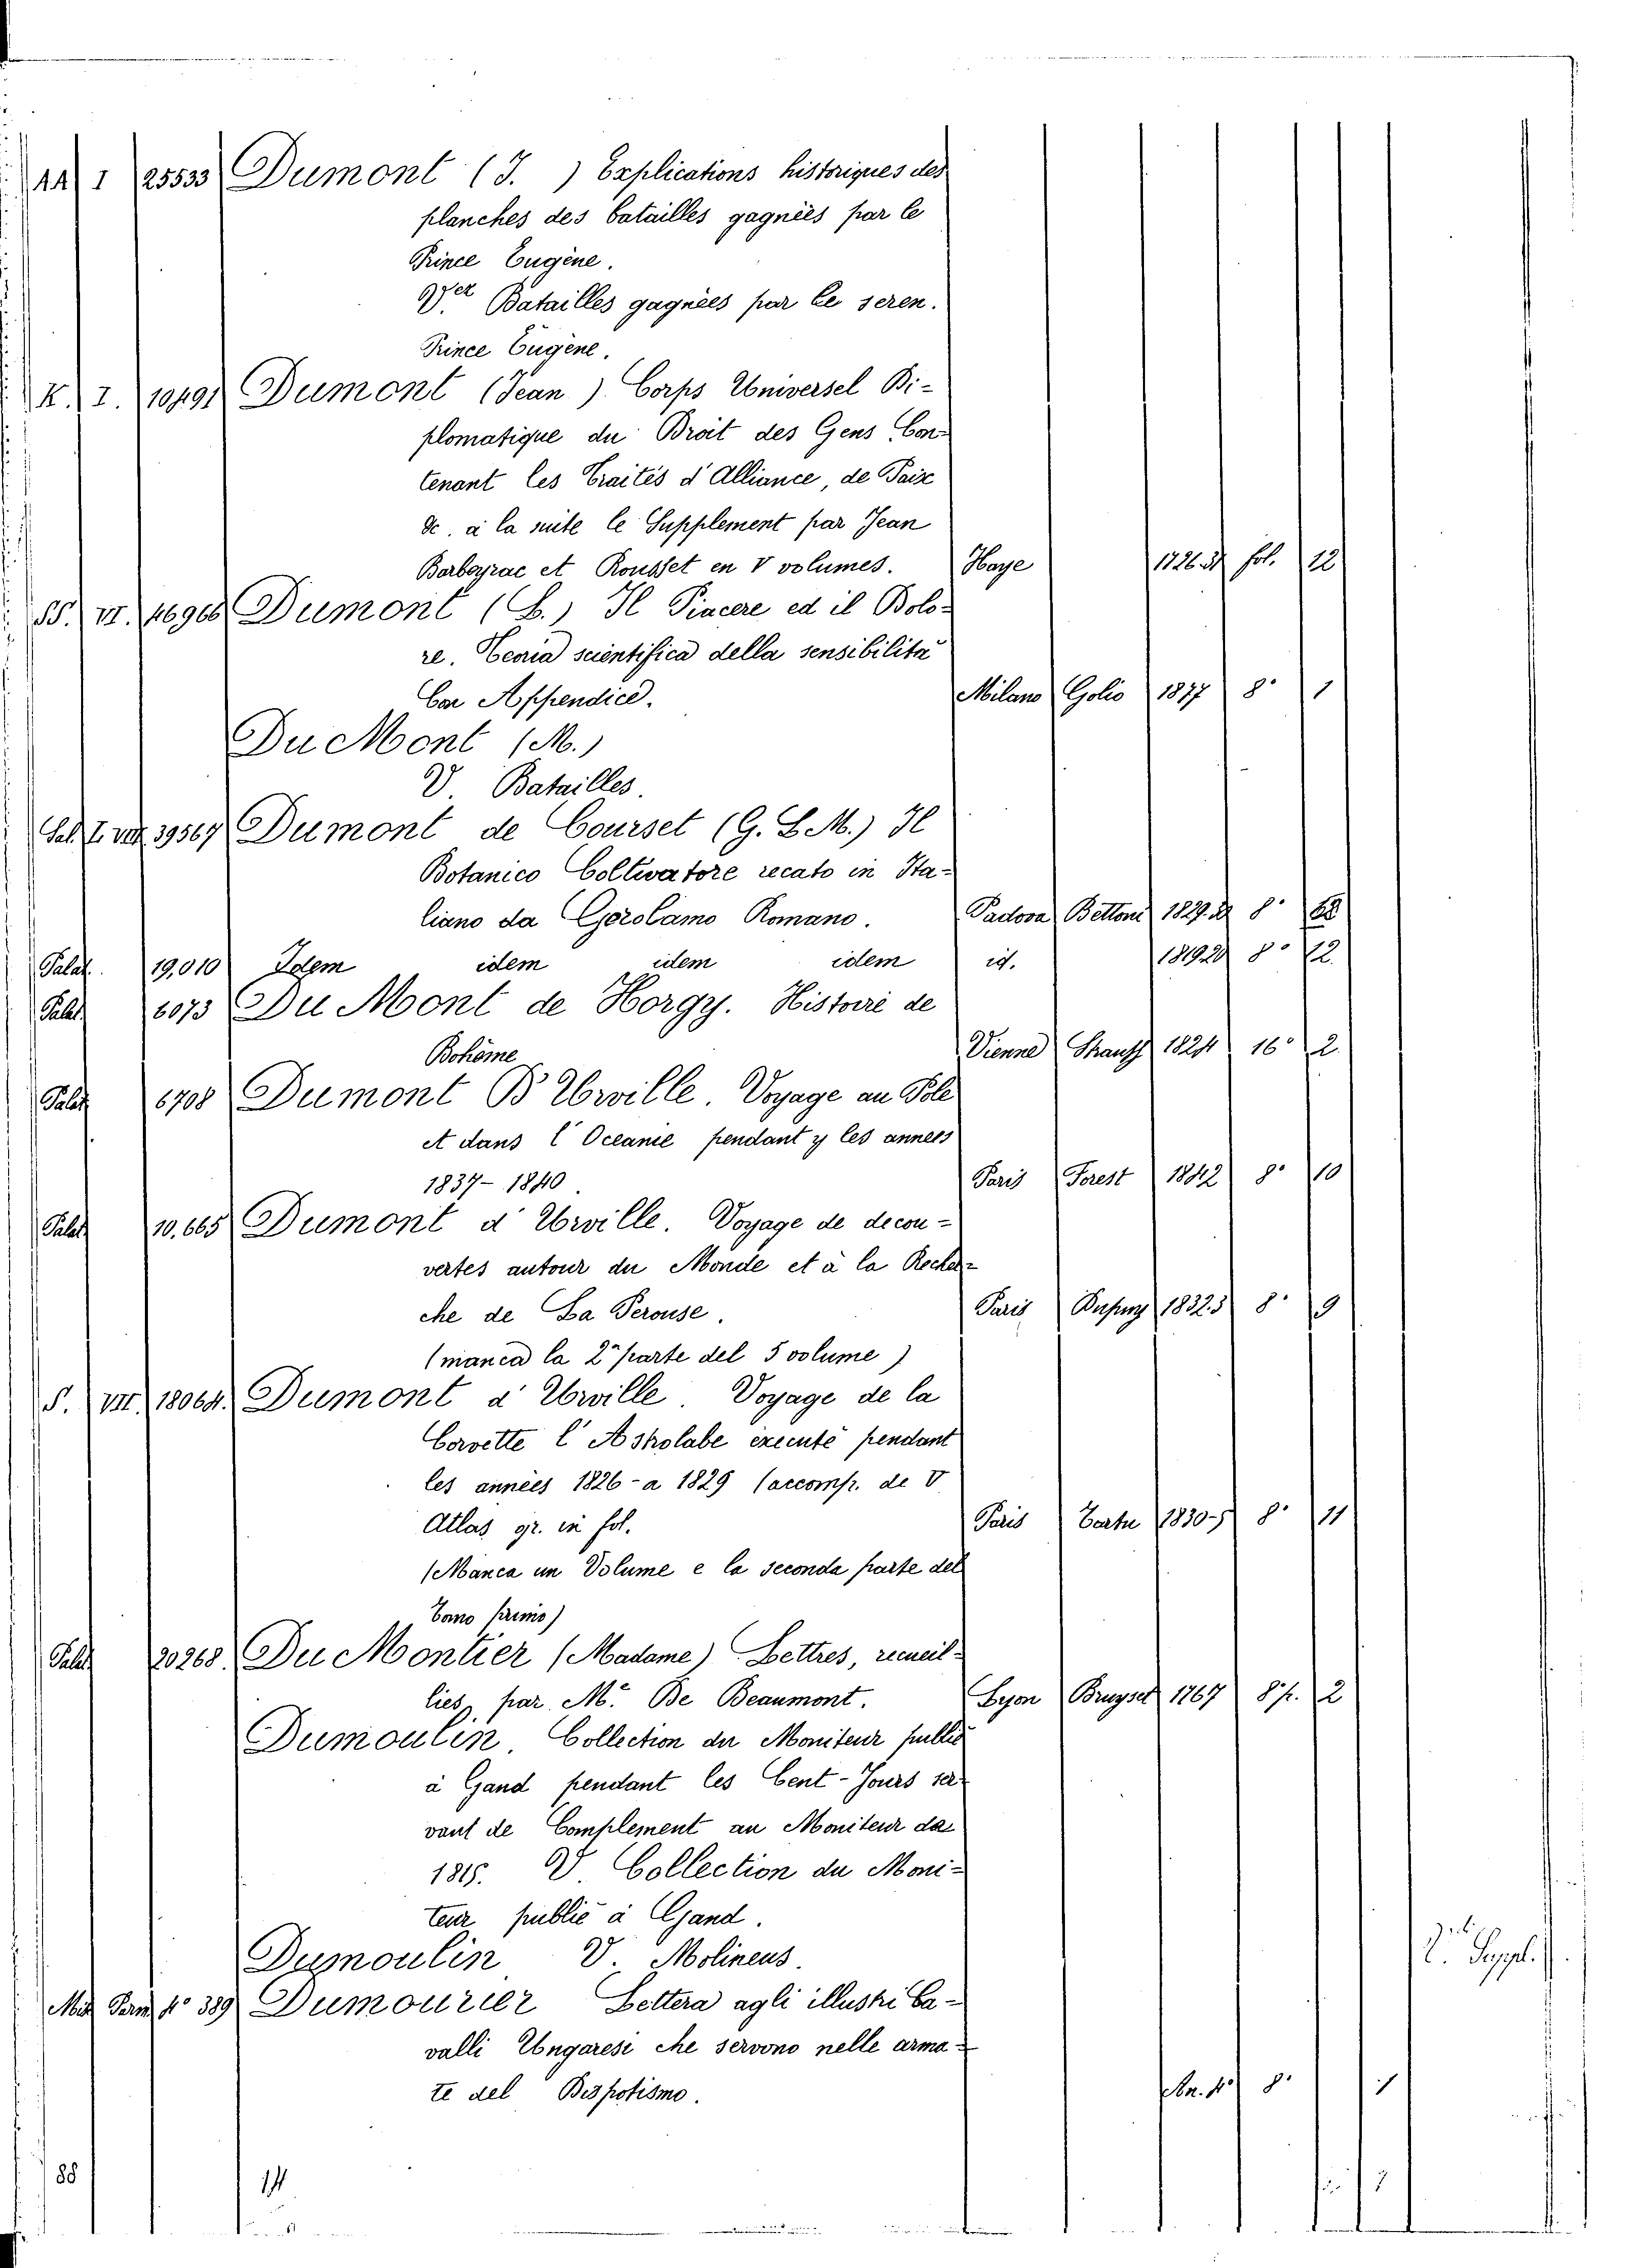 44 I 25533 Dumont (J. ) Explications historiques des
planches des batailles gagnées par le
Prince Eugène.
Batailles gagnées par le seren.
Prince Eugène.
K. I. 10491 Dumont (Jean) Corps Universel Di-
plomatique du Droit des Gens Con-
tenant les Traités d'Alliance, de Paix
&c. à la suite le Supplement par Jean
Barbeyrac et Rousset en V volumes. Haye 1726.31 fol. 12
SS. VI. 46960 Dumont (L.) Il Piacere ed il Dolo-
re. Teoria scientifica della sensibilità
Con Appendice. Milano Golio 1877 8° 1
Du Mont (M.)
V. Batailles.
39567 Dumont de Courset (G. L. M.) Il
Botanico Coltivatore recato in Ita-
liano da Gerolamo Romano. Padova Bettoni 8°
Palat. 19,010 Idem idem idem idem id. 1819.20 8° 12.
Palat. 6073 Du Mont de Horgy. Histoire de
Bohême Vienne Strauss 1824 16° 2.
Palat. 6708 Dumont D'Urville. Voyage au Pole
et dans l'Oceanie pendant y les annees
1837-1840. Paris Forest 1842 8° 10
Palat. 10.665 Dumont d'Urville. Voyage de decou-
vertes autour du Monde et à la Recher-
che de La Perouse. Paris Dupuy 1832.3 8° 9
(manca la 2ª parte del 5 volume)
S. VII. 18064. Dumont d'Urville. Voyage de la
Corvette l'Astrolabe executé pendant
les années 1826-a 1829 (accomp. de V
Atlas gr. in fol. Paris Tartu 1830-5 8° 11
(Manca un Volume e la seconda parte del
Tomo primo)
Palat. 20268. Du Montier (Madame) Lettres, recueil-
lies, par Mr. De Beaumont. Lyon Bruyset 1767 8°p. 2
Dumoulin. Collection du Moniteur publié
à Gand pendant les Cent-Jours ser-
vant de Complement au Moniteur da
1815. V. Collection du Moni-
teur publié à Gand.
Dumoulin V. Molineus. Suppl.
Mis. N° 389 Dumourier Lettera agli illustri Ca-
valli Ungaresi che servono nelle arma-
te del Dispotismo. An. 4° 8° 1
88 14